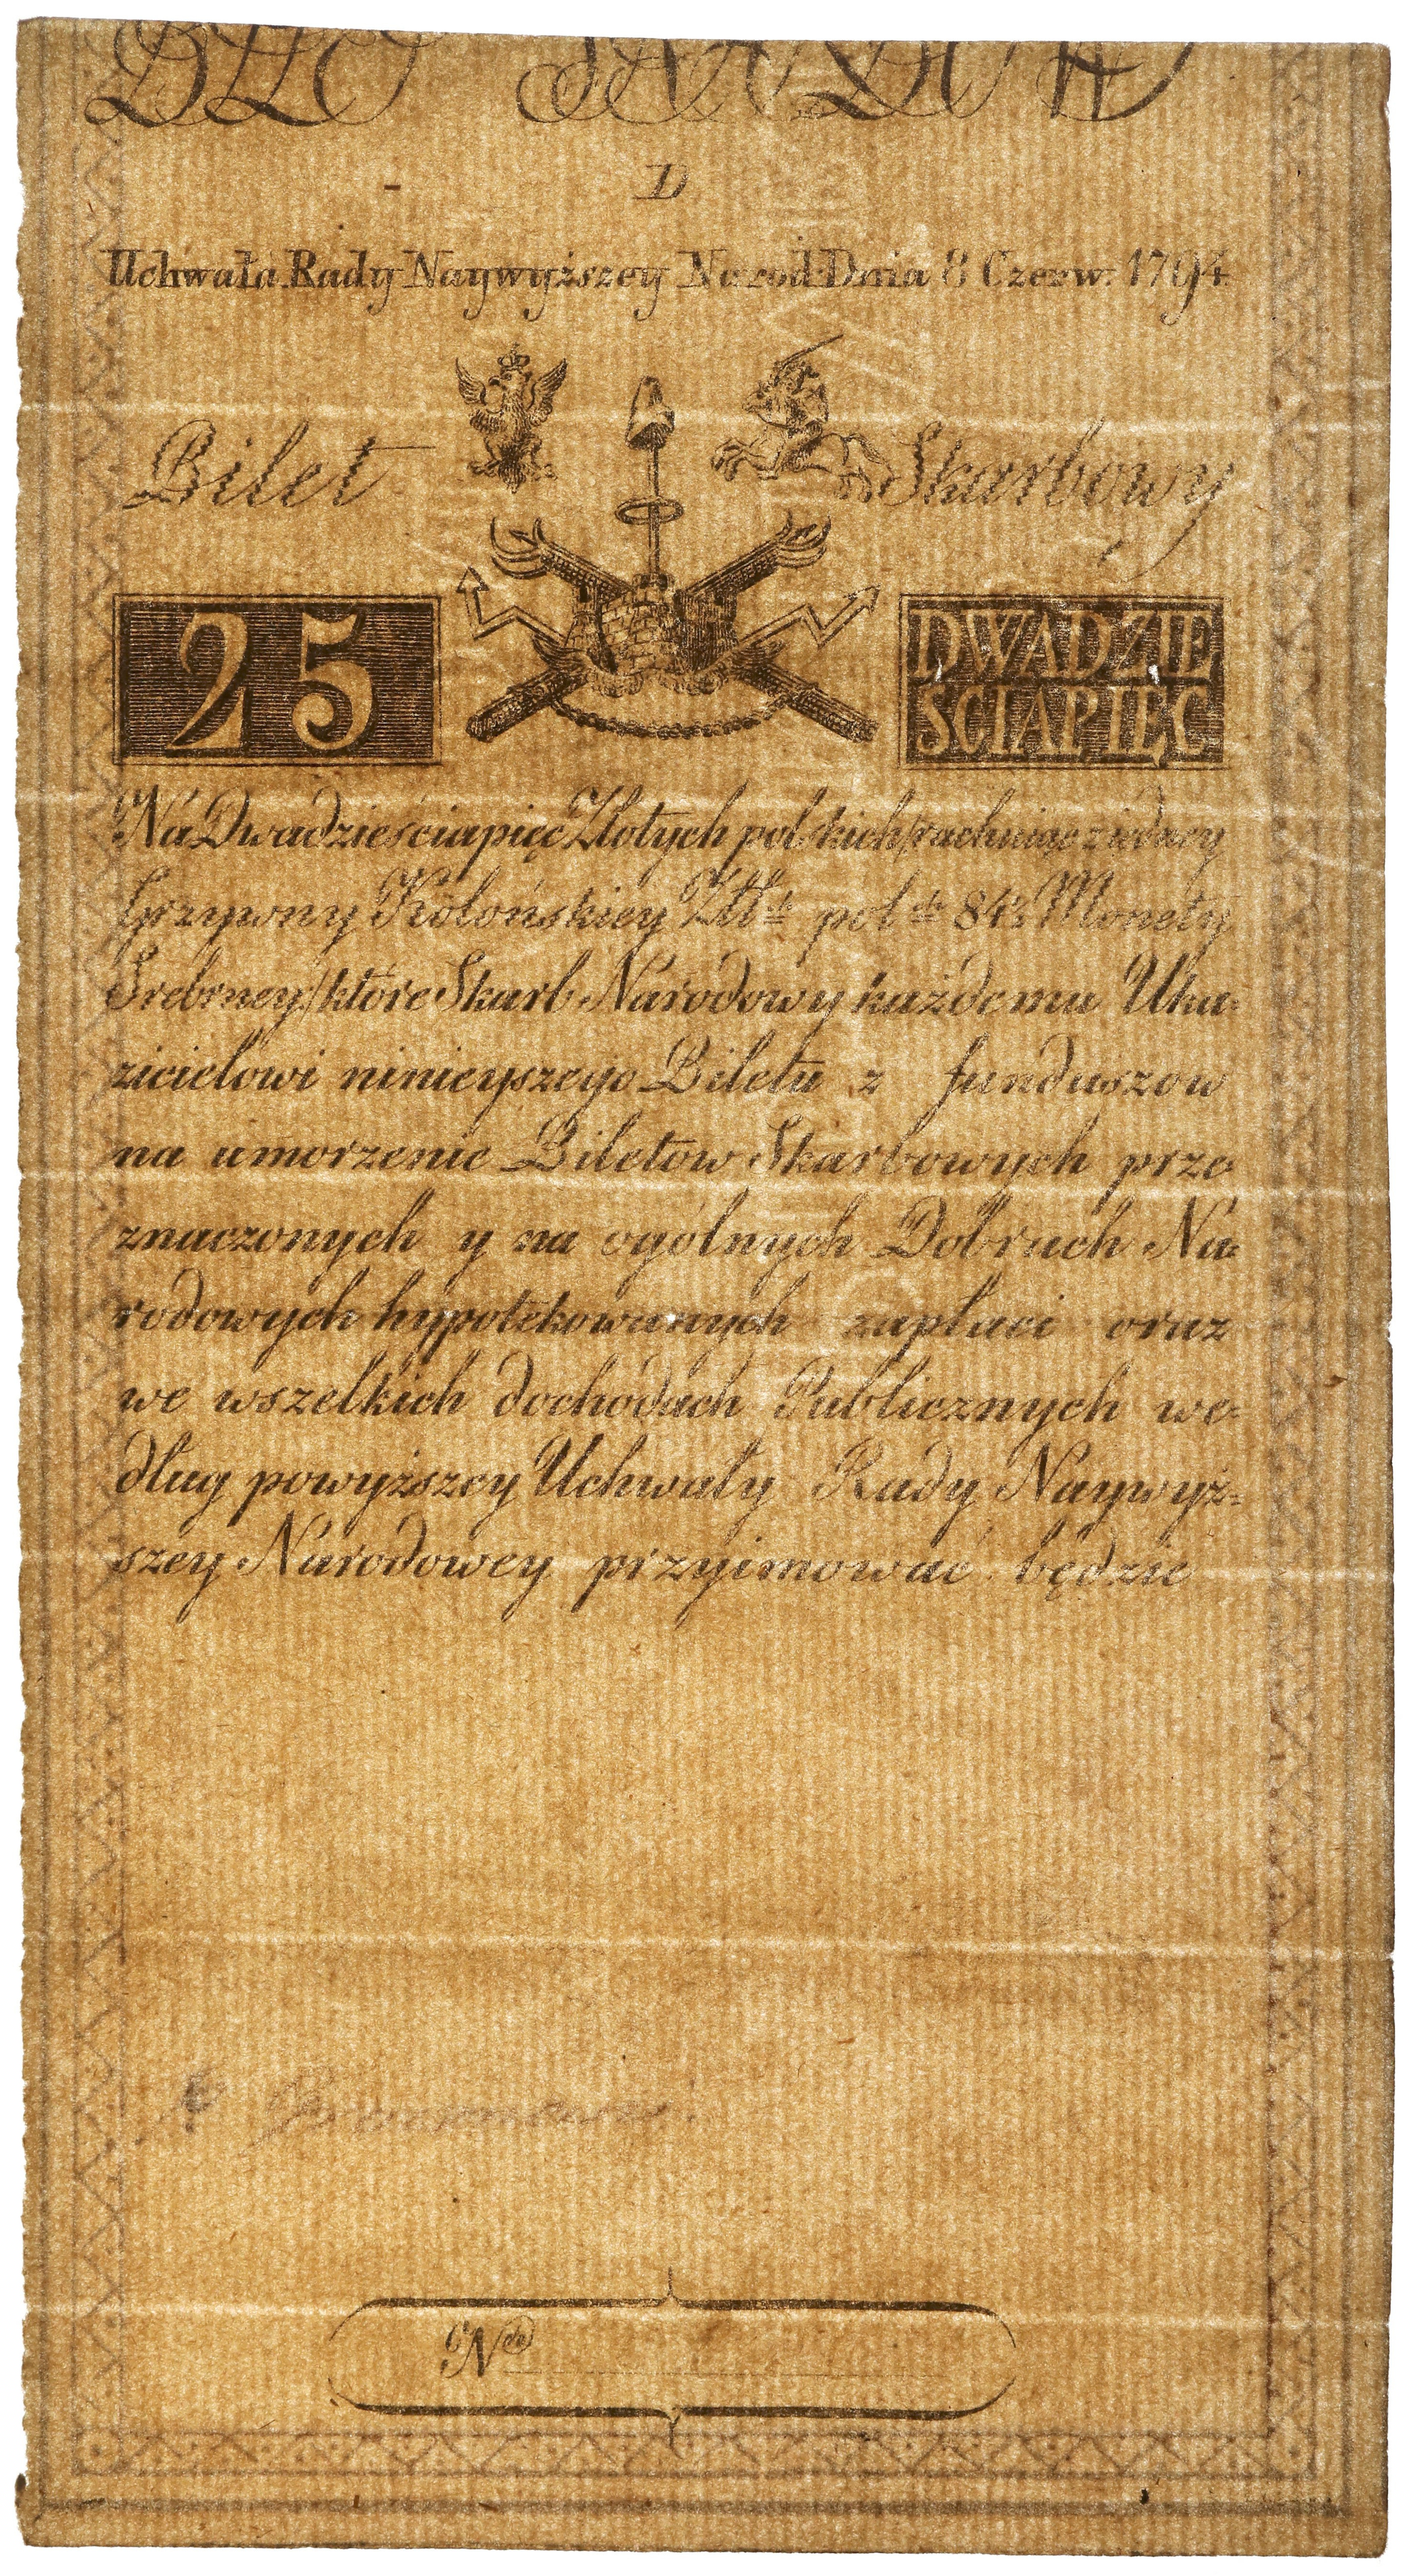 D
Uchwała Rady Naywyższey Narod: Dnia 8 Czerw: 1794
Bilet Skarbowy
25
DWADZIE
SCIAPIĘC
Na Dwadzieściapięć Złotych polskich /rachuiąc z iedney
Grzywny Kolońskiey Złł. pol. 84½ Monety
Srebrney/ które Skarb Narodowy każdemu Uka=
zicielowi ninieyszego Biletu z funduszow
na umorzenie Biletow Skarbowych prze
znaczonych y na ogólnych Dobrach Na=
rodowych hypotekowanych zapłaci oraz
we wszelkich dochodach Publicznych we=
dług powyższey Uchwały Rady Naywyż=
szey Narodowey przyimować będzie
Nro